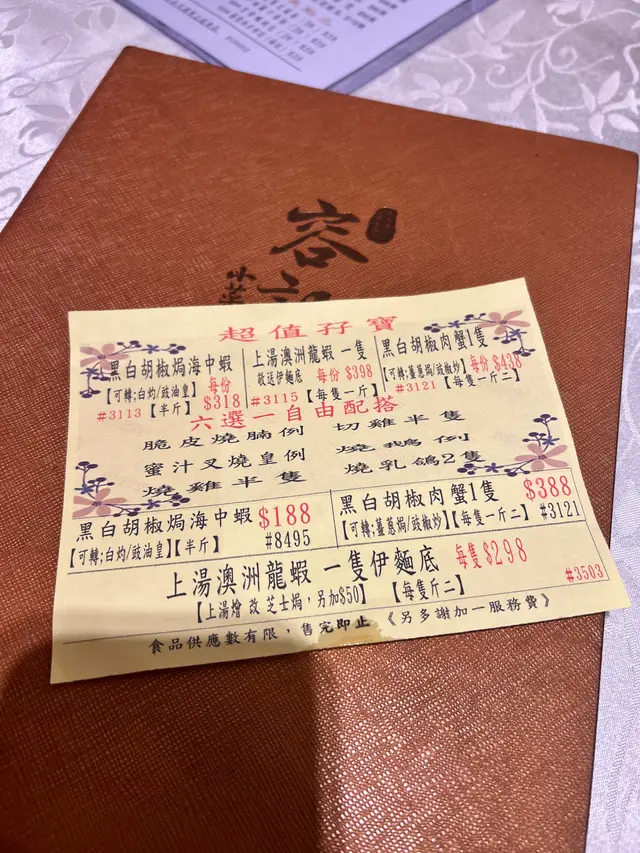 容記
小菜
超值孖寶
黑白胡椒焗海中蝦
【可轉;白灼/豉油皇】 每份
#3113【半斤】 $318
上湯澳洲龍蝦 一隻
敬送伊麵底 每份 $398
#3115【每隻一斤】
黑白胡椒肉蟹1隻
【可轉;薑蔥焗/豉椒炒】每份 $438
#3121【每隻一斤二】
六選一自由配搭
脆皮燒腩例 切雞半隻
蜜汁叉燒皇例 燒鵝例
燒雞半隻 燒乳鴿2隻
黑白胡椒焗海中蝦 $188
【可轉;白灼/豉油皇】【半斤】 #8495
黑白胡椒肉蟹1隻 $388
【可轉;薑蔥焗/豉椒炒】【每隻一斤二】 #3121
上湯澳洲龍蝦 一隻伊麵底 每隻 $298
【上湯燴 改 芝士焗，另加$50】 【每隻斤二】 #3503
食品供應數有限，售完即止 《另多謝加一服務費》